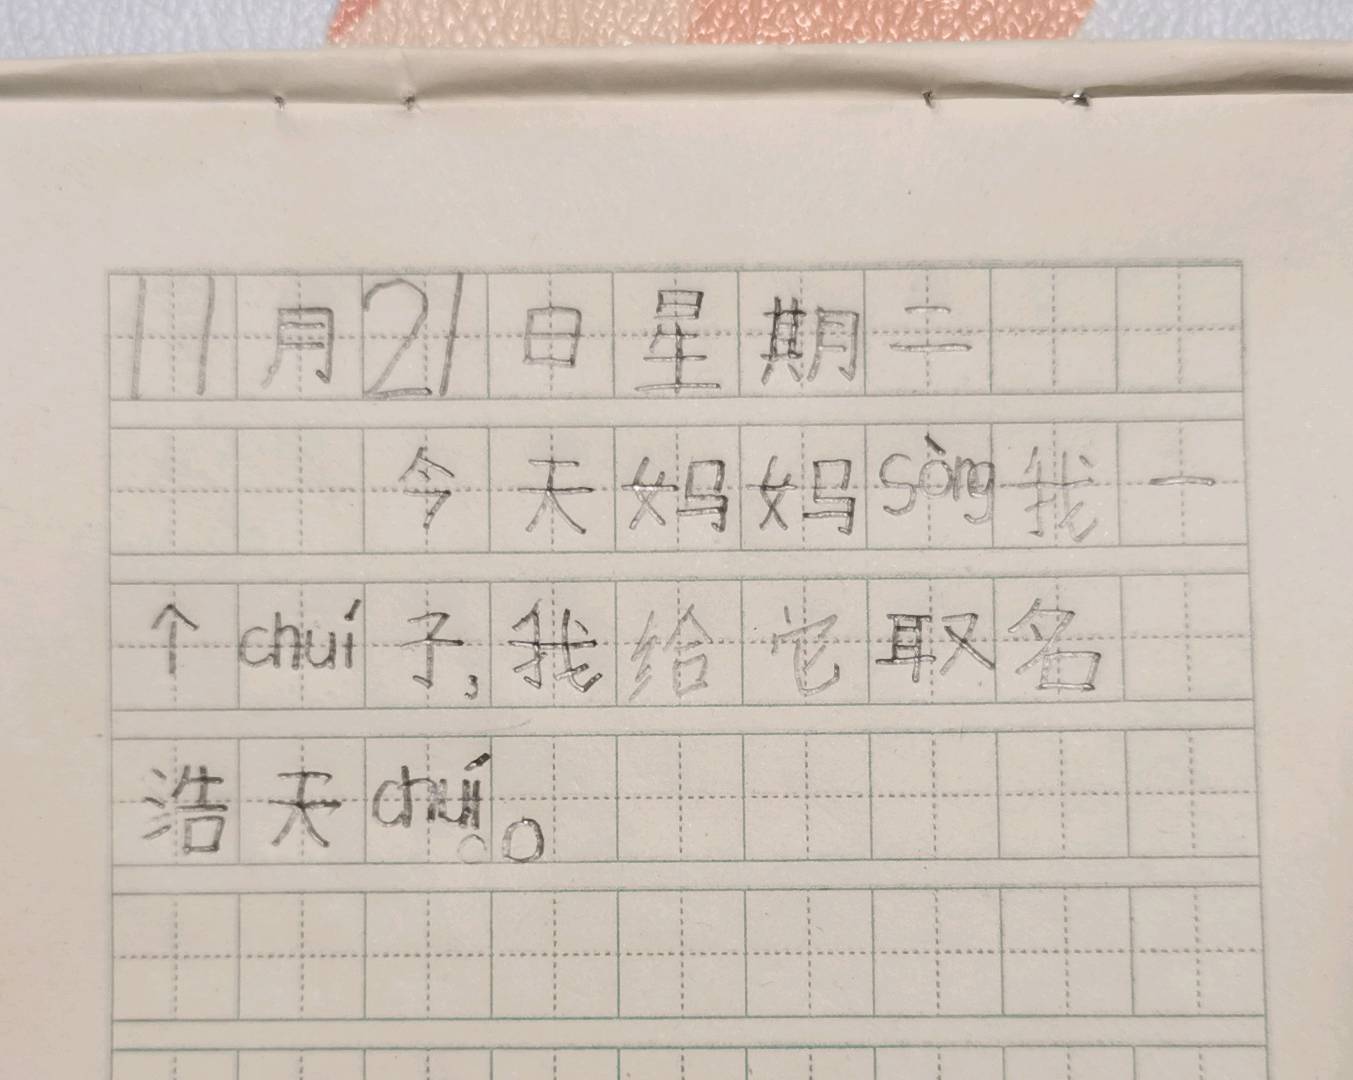 11月21日星期二
今天妈妈sòng我一
个chuí子,我给它取名
浩天chuí。